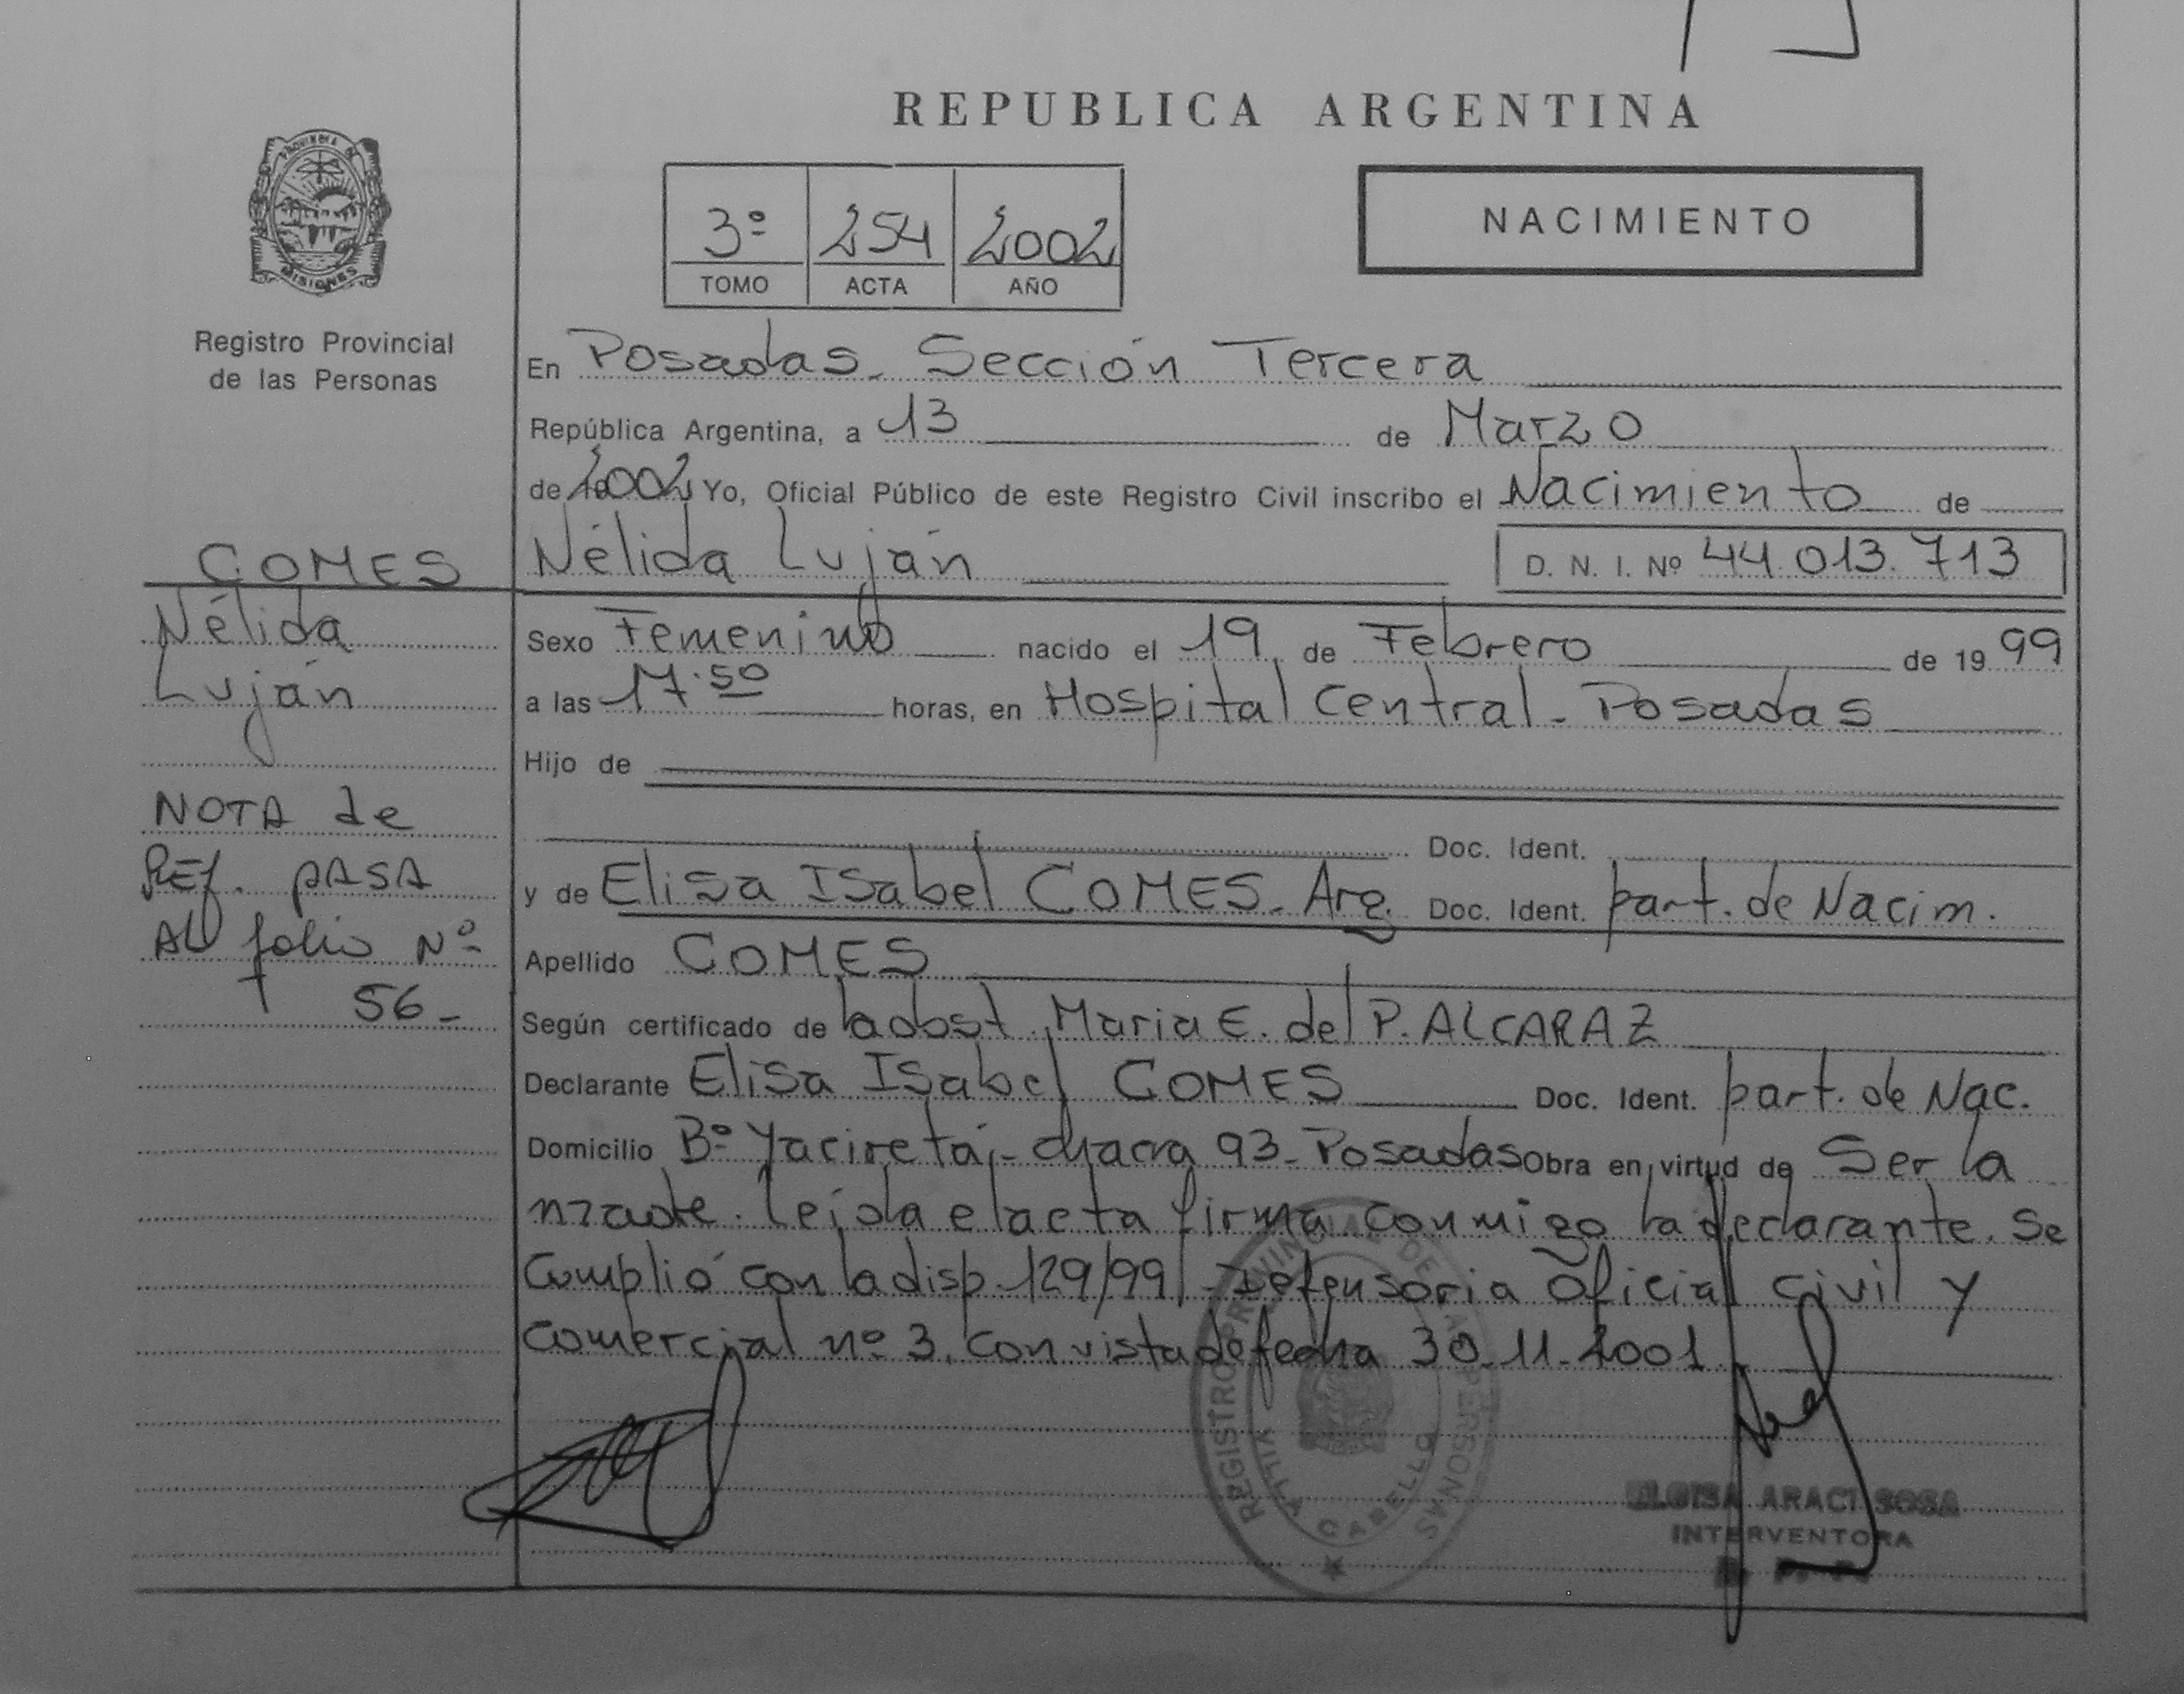 REPUBLICA ARGENTINA
PROVINCIA DE
MISIONES
Registro Provincial
de las Personas
3º 254 2002
TOMO ACTA AÑO
NACIMIENTO
En Posadas. Sección Tercera
República Argentina, a 13 de Marzo
de 2002 Yo, Oficial Público de este Registro Civil inscribo el Nacimiento de
Nélida Luján
D. N. I. Nº 44.013.713
Sexo Femenino nacido el 19 de Febrero de 1999
a las 17.50 horas, en Hospital Central - Posadas
Hijo de
Doc. Ident.
y de Elisa Isabel GOMES. Arg. Doc. Ident. part. de Nacim.
Apellido GOMES
Según certificado de la obst. Maria E. del P. ALCARAZ
Declarante Elisa Isabel GOMES Doc. Ident. part. de Nac.
Domicilio Bº Yaciretá,- chacra 93 - Posadas Obra en virtud de Ser la
madre. Leída el acta firma conmigo la declarante. Se
Cumplió con la disp. 129/99 - Defensoria Oficial Civil y
Comercial nº 3, con vista de fecha 30-11-2001
GOMES
Nélida
Luján
NOTA de
REf. PASA
AL folio Nº
56-
REGISTRO PROVINCIAL DE LAS PERSONAS
VILLA CABELLO
ELOISA ARACI SOSA
INTERVENTORA